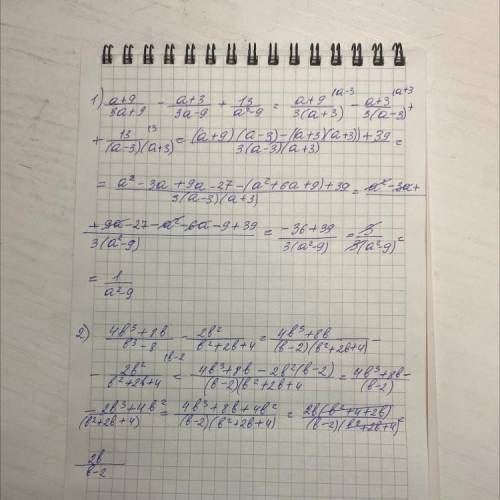 1) (a+9)/(3a+9) - (a+3)/(3a-9) + 13/(a²-9) = (a+9)/(3(a+3)) |a-3 - (a+3)/(3(a-3)) |a+3 +
+ 13/((a-3)(a+3)) |3 = ((a+9)(a-3)-(a+3)(a+3)+39)/(3(a-3)(a+3)) =
= (a²-3a+9a-27-(a²+6a+9)+39)/(3(a-3)(a+3)) = a²-3a+
+9a-27-a²-6a-9+39/(3(a²-9)) = (-36+39)/(3(a²-9)) = 3/(3(a²-9)) =
= 1/(a²-9)
2) (4b³+8b)/(b³-8) - 2b²/(b²+2b+4) = (4b³+8b)/((b-2)(b²+2b+4)) -
- 2b²/(b²+2b+4) |b-2 = (4b³+8b-2b²(b-2))/((b-2)(b²+2b+4) = (4b³+8b-)/(b-2)
-2b³+4b²/(b²+2b+4) = (4b³+8b+4b²)/((b-2)(b²+2b+4)) = 2b(b²+4+2b)/((b-2)(b²+2b+4)) =
2b/(b-2)